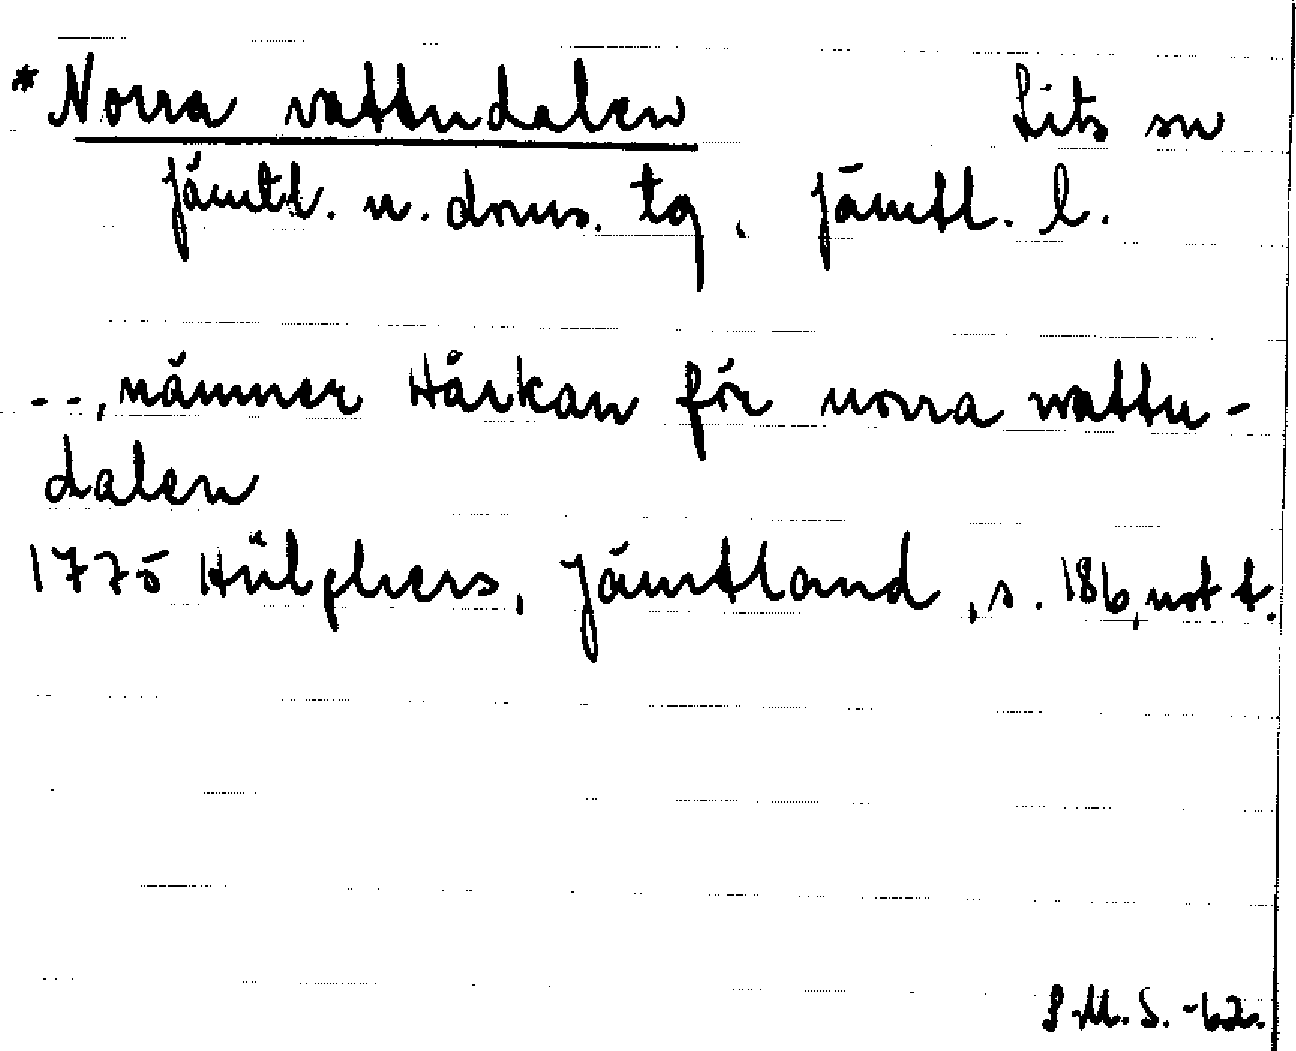 *Norra vattudalen Lits sn
Jämtl. n. doms. tg. Jämtl. l.
--, nämner Hårkan för norra wattu-
dalen
1775 Hülphers, Jämtland, s. 186, not t.
S.M.S. -62.